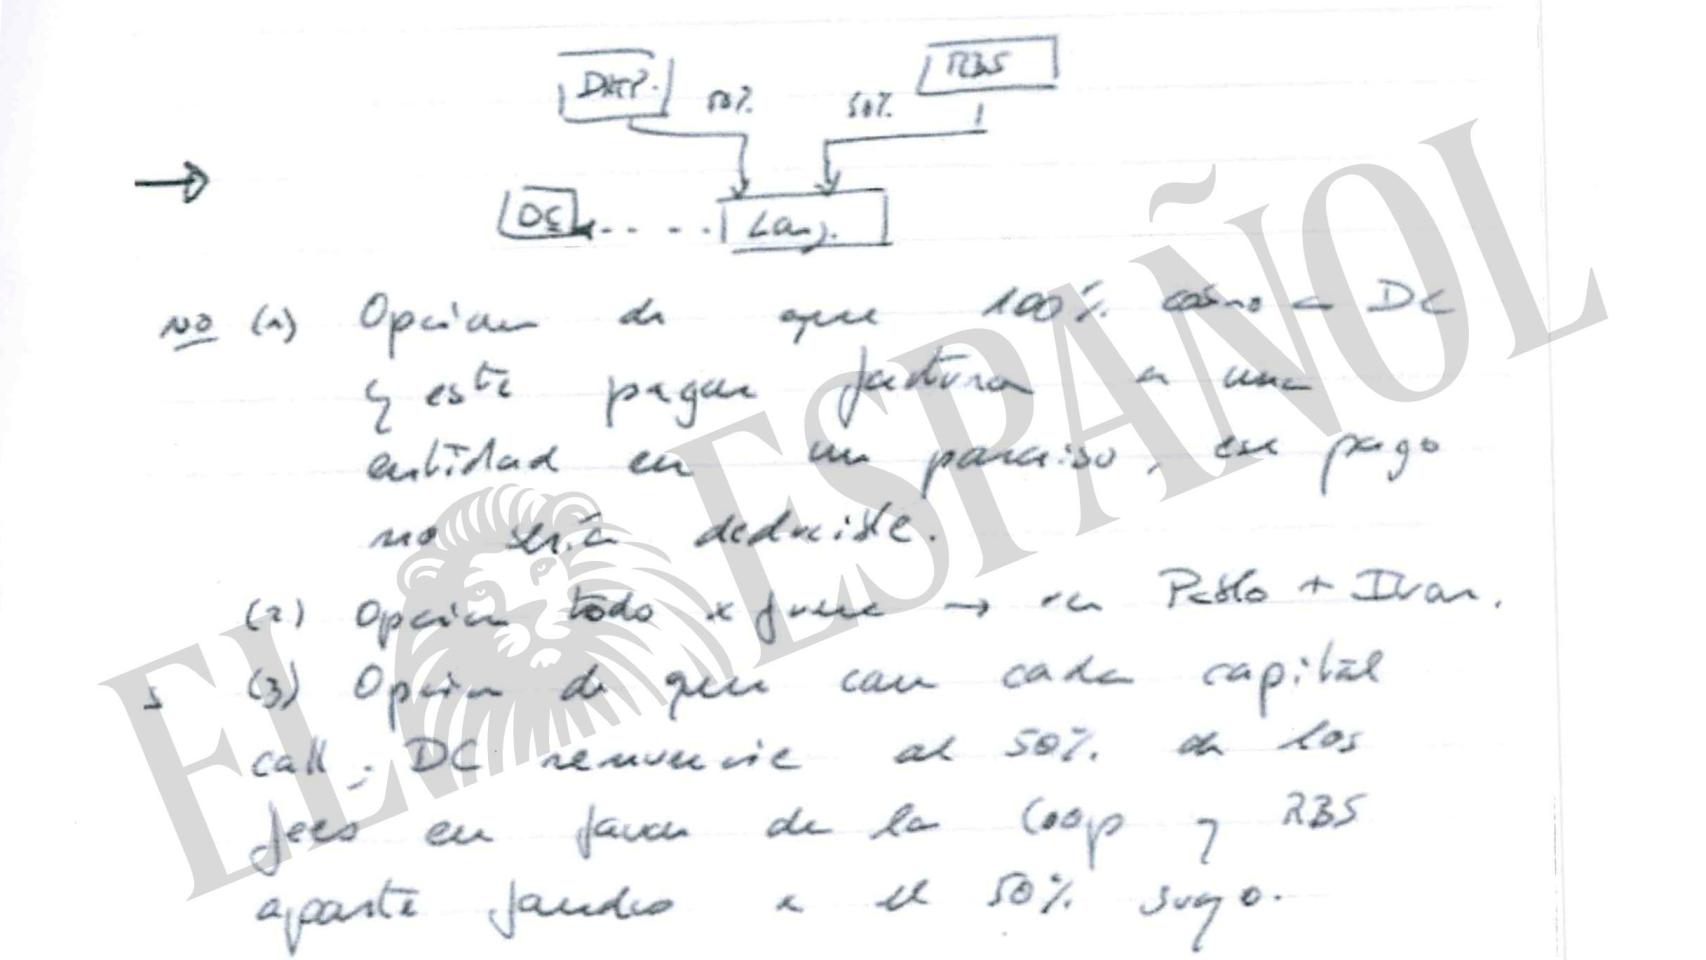 RBS
50% 50%
DC
NO (1) Opcion de que 100% como a DC
y este pagar factura a una
entidad en un paraiso, ese pago
no sería deducible.
(2) Opcion todo x fuera → Pablo + Ivan.
(3) Opcion de que con cada capital
call, DC renuncie al 50% de los
fees en favor de la Coop y RBS
aporte fondos x el 50% suyo.
EL ESPAÑOL